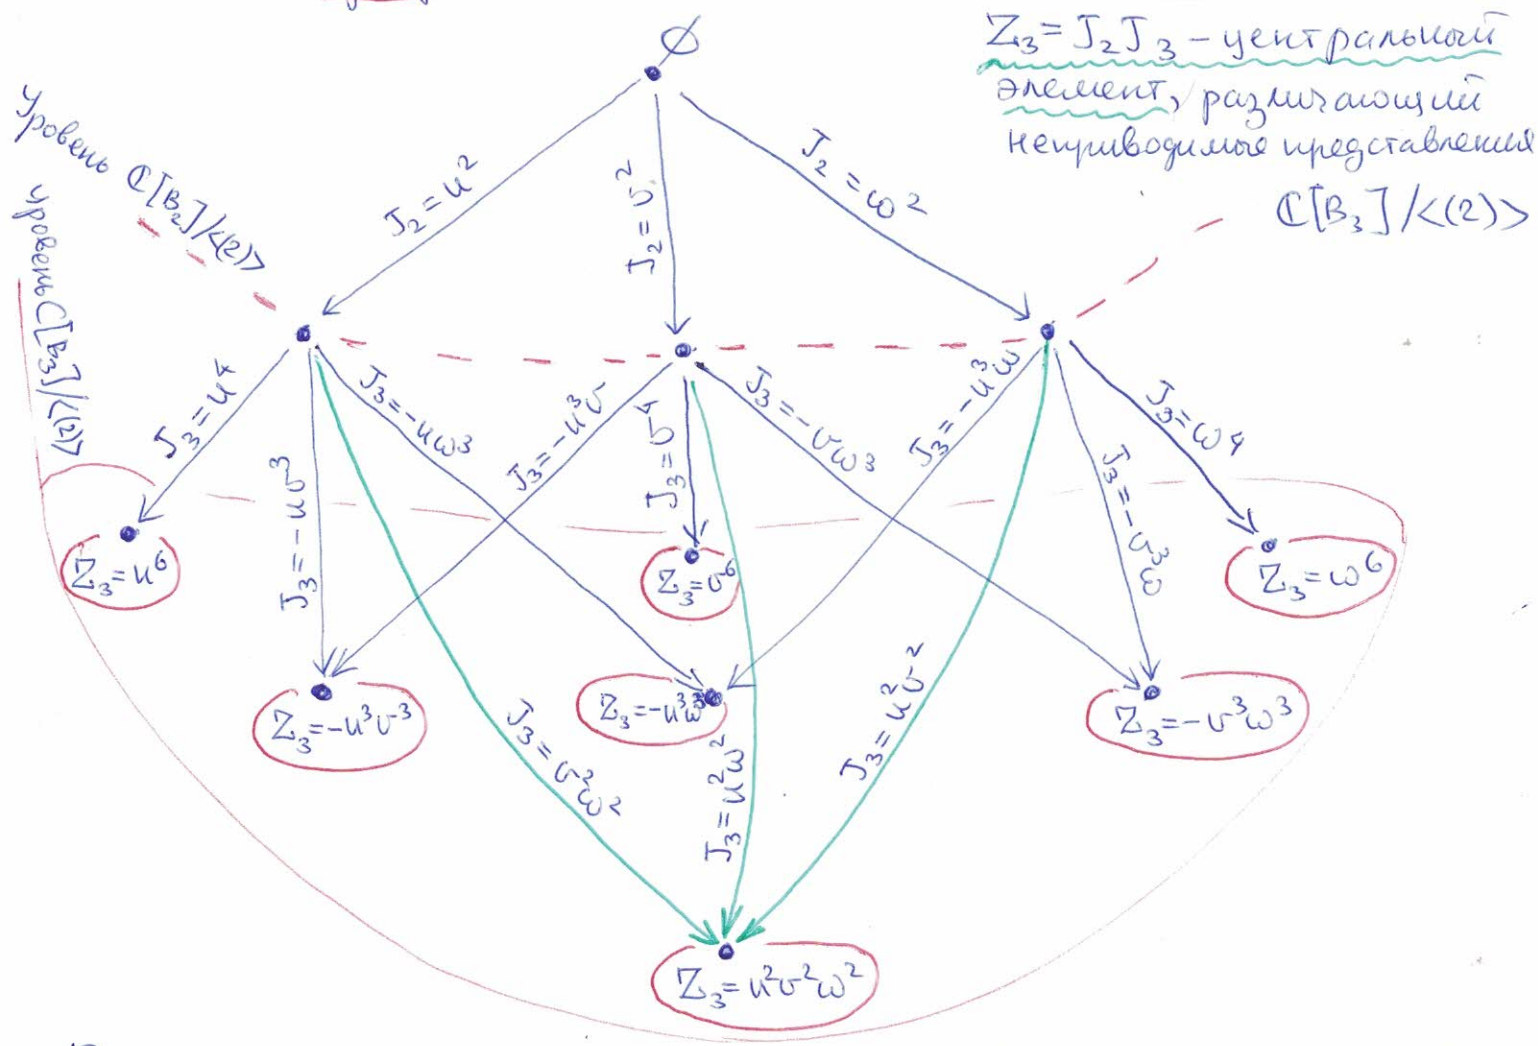 ∅
Z₃ = J₂J₃ – центральный
элемент, различающий
неприводимые представления
ℂ[B₃]/<(2)>
Уровень ℂ[B₂]/<(2)>
Уровень ℂ[B₃]/<(2)>
J₂ = u²
J₂ = v²
J₂ = ω²
J₃ = u⁴
J₃ = -uv³
J₃ = -uω³
J₃ = -u³v
J₃ = v⁴
J₃ = -vω³
J₃ = -u³ω
J₃ = -v³ω
J₃ = ω⁴
Z₃ = u⁶
Z₃ = v⁶
Z₃ = ω⁶
Z₃ = -u³v³
Z₃ = -u³ω³
Z₃ = -v³ω³
J₃ = v²ω²
J₃ = u²ω²
J₃ = u²v²
Z₃ = u²v²ω²